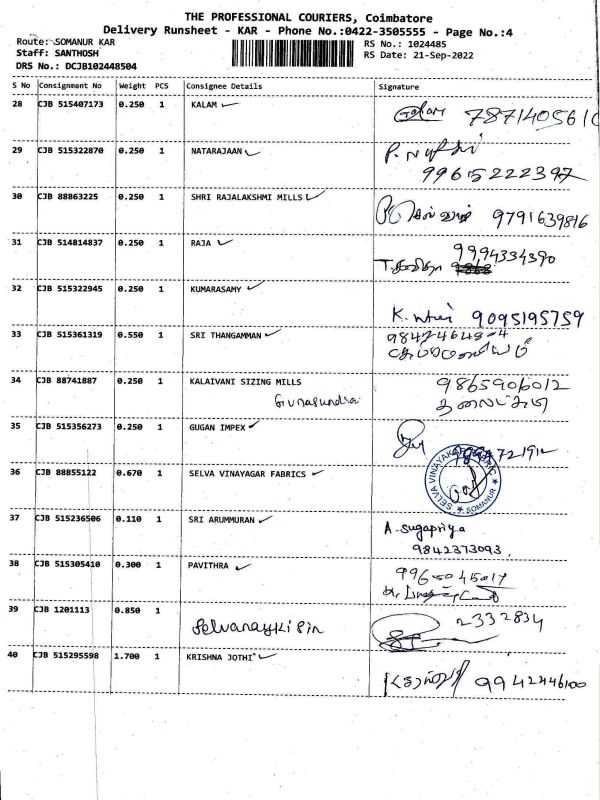 THE PROFESSIONAL COURIERS, Coimbatore
Delivery Runsheet - KAR - Phone No.:0422-3505555 - Page No.:4
Route: SOMANUR KAR
Staff: SANTHOSH
DRS No.: DCJB102448504
RS No.: 1024485
RS Date: 21-Sep-2022
S No Consignment No Weight PCS Consignee Details Signature
28 CJB 515407173 0.250 1 KALAM
29 CJB 515322870 0.250 1 NATARAJAAN
99615222397
30 CJB 88863225 0.250 1 SHRI RAJALAKSHMI MILLS 9791639816
31 CJB 514814837 0.250 1 RAJA 9994334390
32 CJB 515322945 0.250 1 KUMARASAMY
9095195759
33 CJB 515361319 0.550 1 SRI THANGAMMAN
34 CJB 88741887 0.250 1 KALAIVANI SIZING MILLS 9865906012
35 CJB 515356273 0.250 1 GUGAN IMPEX
36 CJB 88855122 0.670 1 SELVA VINAYAGAR FABRICS
SELVA VINAYAKAR FABRIC
SOMANUR
37 CJB 515236506 0.110 1 SRI ARUMMURAN A. Sugapriya
9842373093.
38 CJB 515305410 0.300 1 PAVITHRA 9965045017
39 CJB 1201113 0.850 1 2332834
40 CJB 515295598 1.700 1 KRISHNA JOTHI 9942446100